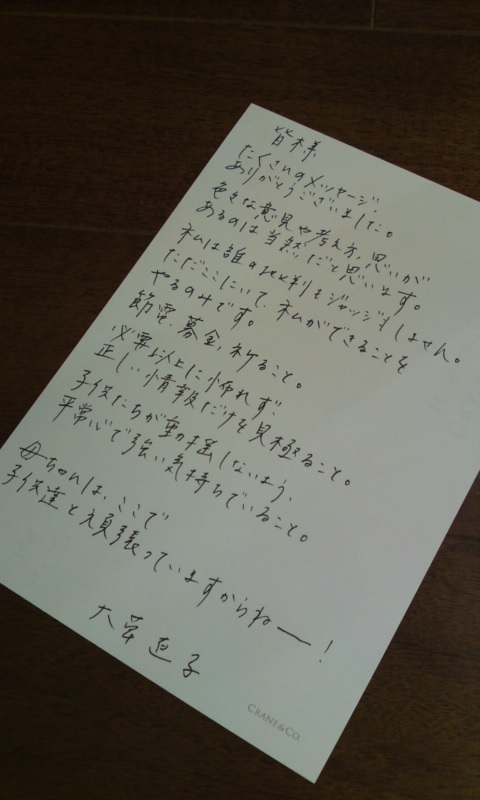 皆様
たくさんのメッセージ、
ありがとうございました。
色々な意見や考え方、思いが
あるのは当然だと思います。
私は誰の批判もジャッジもしません。
ただここにいて、私ができることを
やるのみです。
節電、募金、祈ること。
必要以上に怖れず、
正しい情報だけを見極ること。
子供たちが動揺しないよう、
平常心で強い気持ちでいること。
母ちゃんは、ここで
子供達と頑張っていますからねー!
大草直子
CRANE&CO.